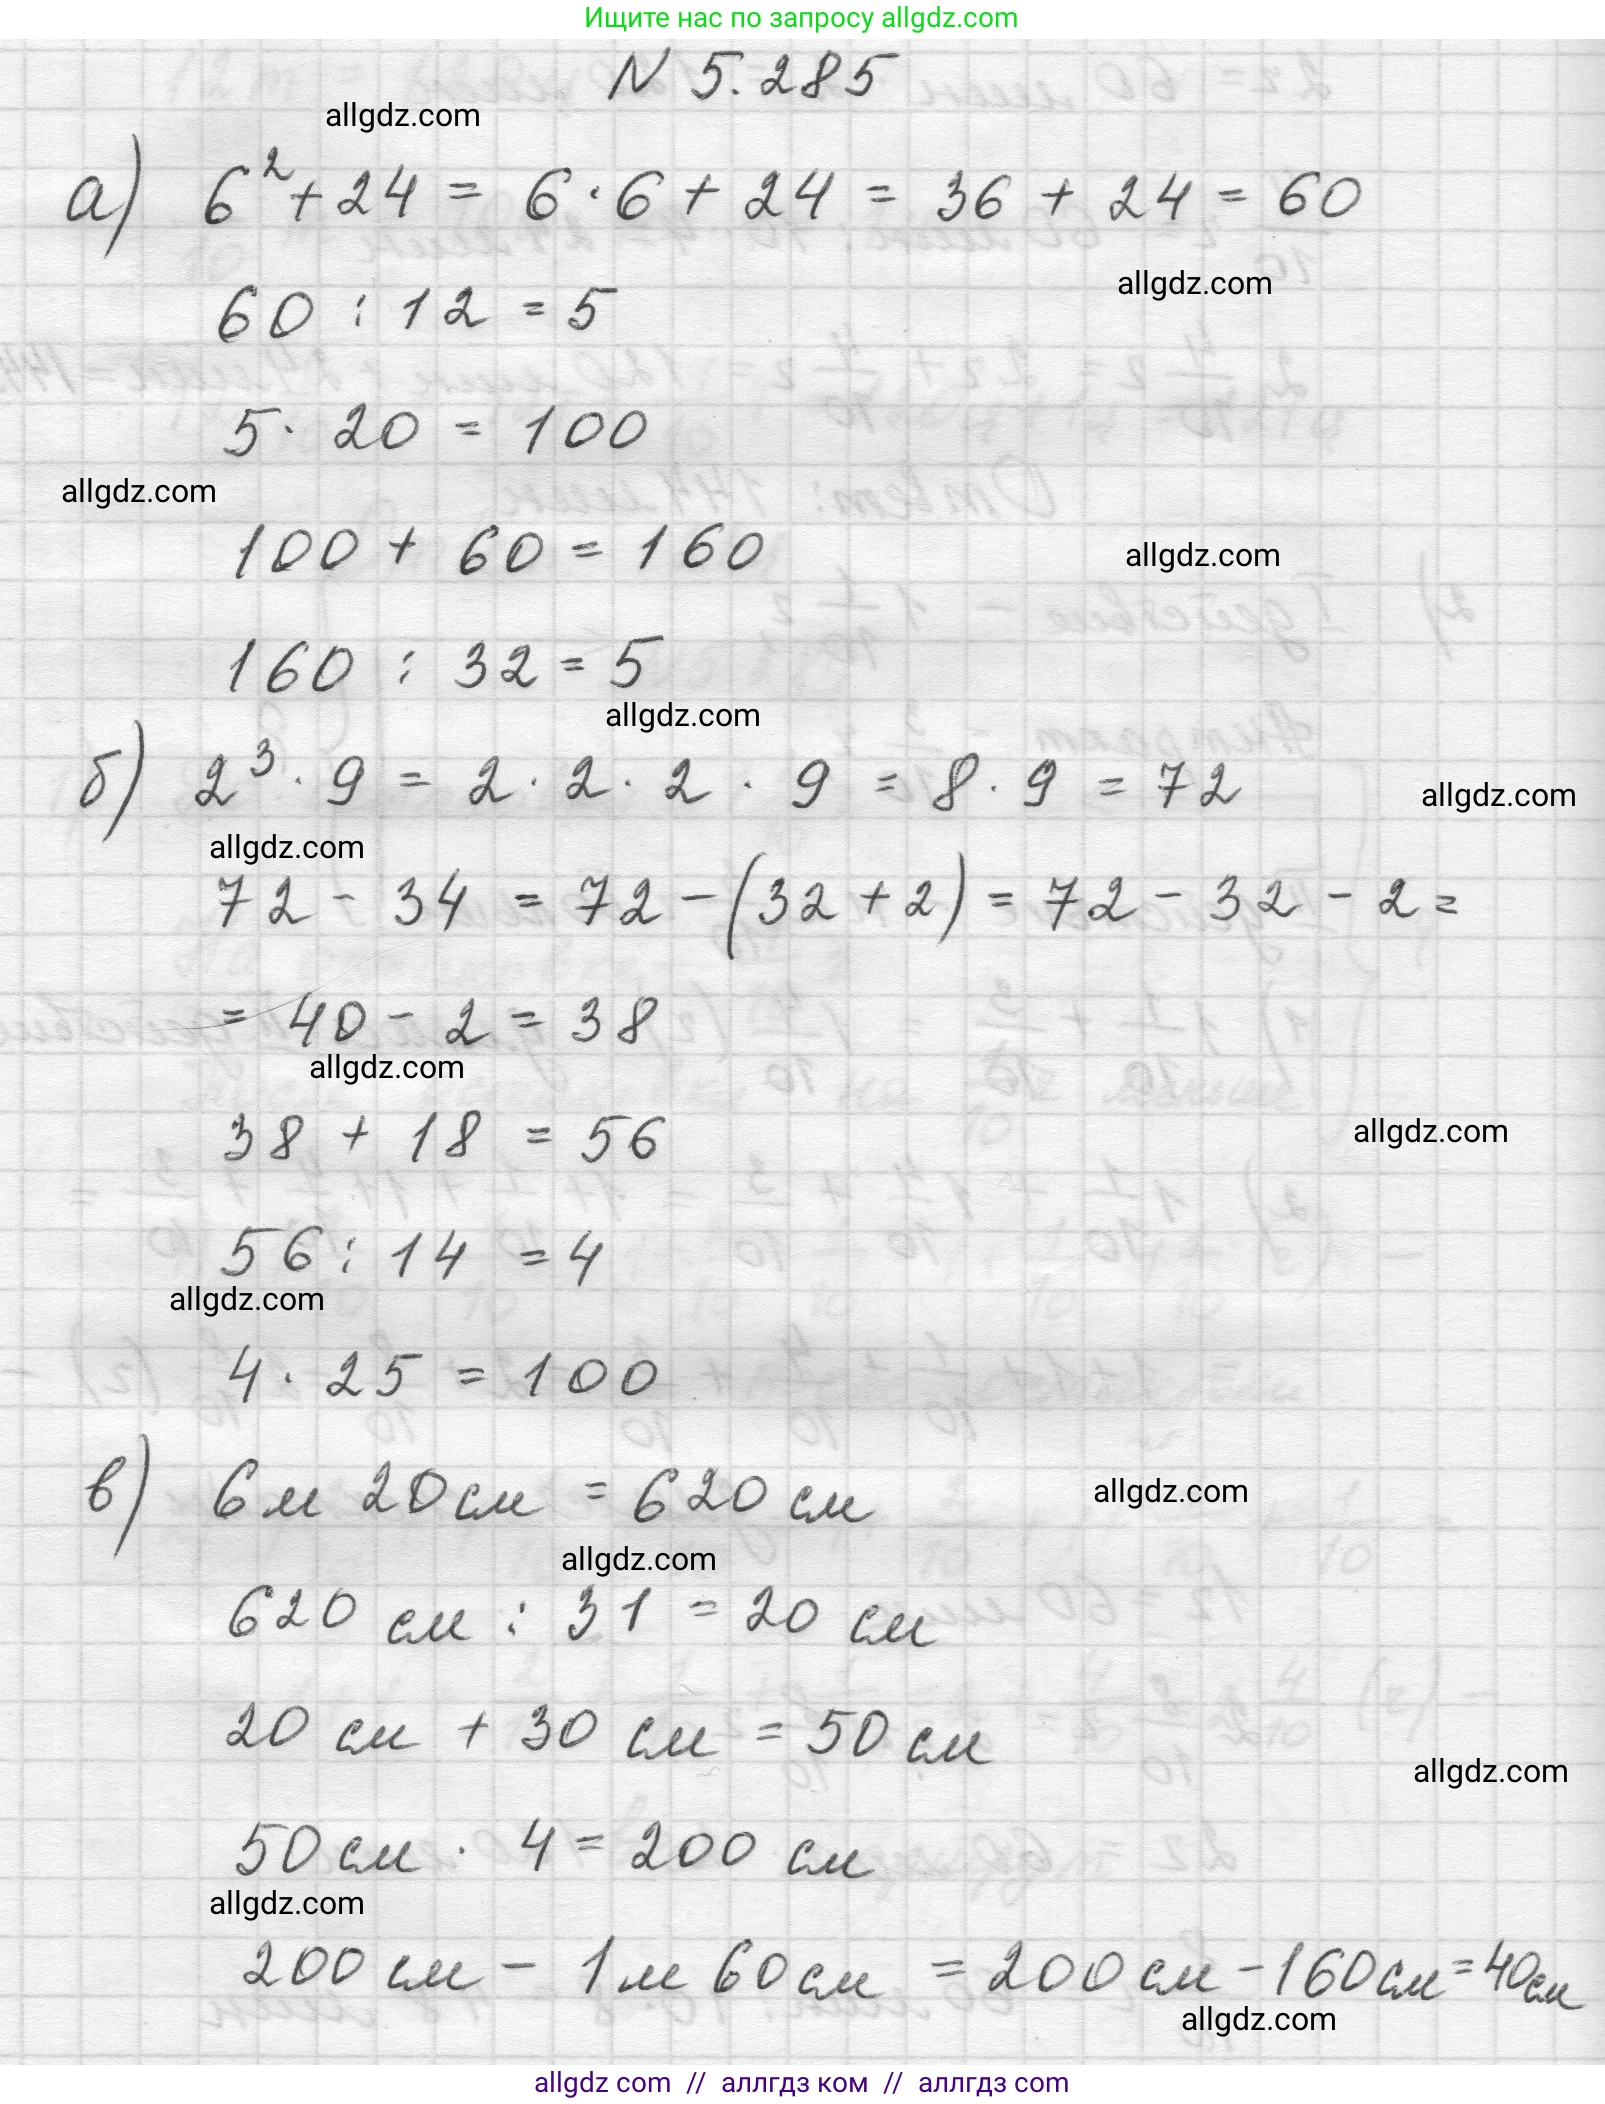 Ищите нас по запросу allgdz.com
N 5.285
allgdz.com
а) 6² + 24 = 6 · 6 + 24 = 36 + 24 = 60
allgdz.com
60 : 12 = 5
5 · 20 = 100
allgdz.com
100 + 60 = 160
allgdz.com
160 : 32 = 5
allgdz.com
б) 2³ · 9 = 2 · 2 · 2 · 9 = 8 · 9 = 72
allgdz.com
allgdz.com
72 - 34 = 72 - (32 + 2) = 72 - 32 - 2 =
= 40 - 2 = 38
allgdz.com
38 + 18 = 56
allgdz.com
56 : 14 = 4
allgdz.com
4 · 25 = 100
в) 6 м 20 см = 620 см
allgdz.com
allgdz.com
620 см : 31 = 20 см
20 см + 30 см = 50 см
allgdz.com
50 см · 4 = 200 см
allgdz.com
200 см - 1 м 60 см = 200 см - 160 см = 40 см
allgdz.com
allgdz com // аллгдз ком // аллгдз com